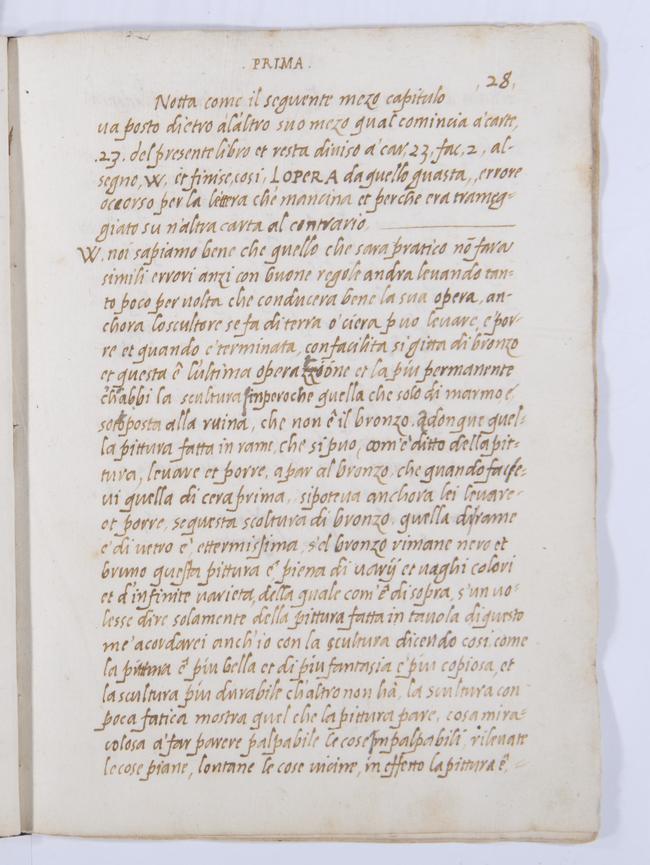 . PRIMA .
. 28 .
Notta come il seguente mezo capitulo
ua posto dietro à làltro suo mezo qual comincia a carte,
.23. del presente libro et resta diuiso a car, 23, fac, 2, al-
segno, W, et finise, cosi, LOPERA da quello guasta,, errore
occorso per la lettera che mancina et perche era trameg=
giato su n'altra carta al contrario,
W. noi sapiamo bene che quello che sara pratico nõ fara
simili errori anzi con buone regole andra leuando tan-
to poco per uolta che conducera bene la sua opera, an-
chora loscultore se fa di terra o ciera puo leuare, e por-
re et quando e terminata, con facilita si gitta di bronzo
et questa ê l'ultima operazione et la piu permanente
ch'abbi la scultura inperoche quella che solo di marmo é,
sotoposta alla ruina, che non ê il bronzo. adonque quel-
la pittura fatta in rame, che si puo, com'e ditto della pit-
tura, leuare et porre, a par al bronzo, che quando faces-
ui quella di cera prima, si poteua anchora lei leuare-
et porre, se questa scoltura di bronzo, quella di rame
e di uetro e, etternissima, s'el bronzo rimane nero et
bruno questa pittura ê piena di uarij et uaghi colori
et d'infinite varieta, della quale com'ê di sopra, s'un uo-
lesse dire solamente della pittura fatta in tauola di questo
me acordarei anch'io con la scultura dicendo cosi come
la pittura ê piu bella et di piu fantasia e piu copiosa, et
la scultura piu durabile ch'altro non hà, la scultura con
poca fatica mostra quel che la pittura pare, cosa mira-
colosa a far parere palpabile le cose inpalpabili, rileuate
le cose piane, lontane le cose uicine, in effetto la pittura ê, =